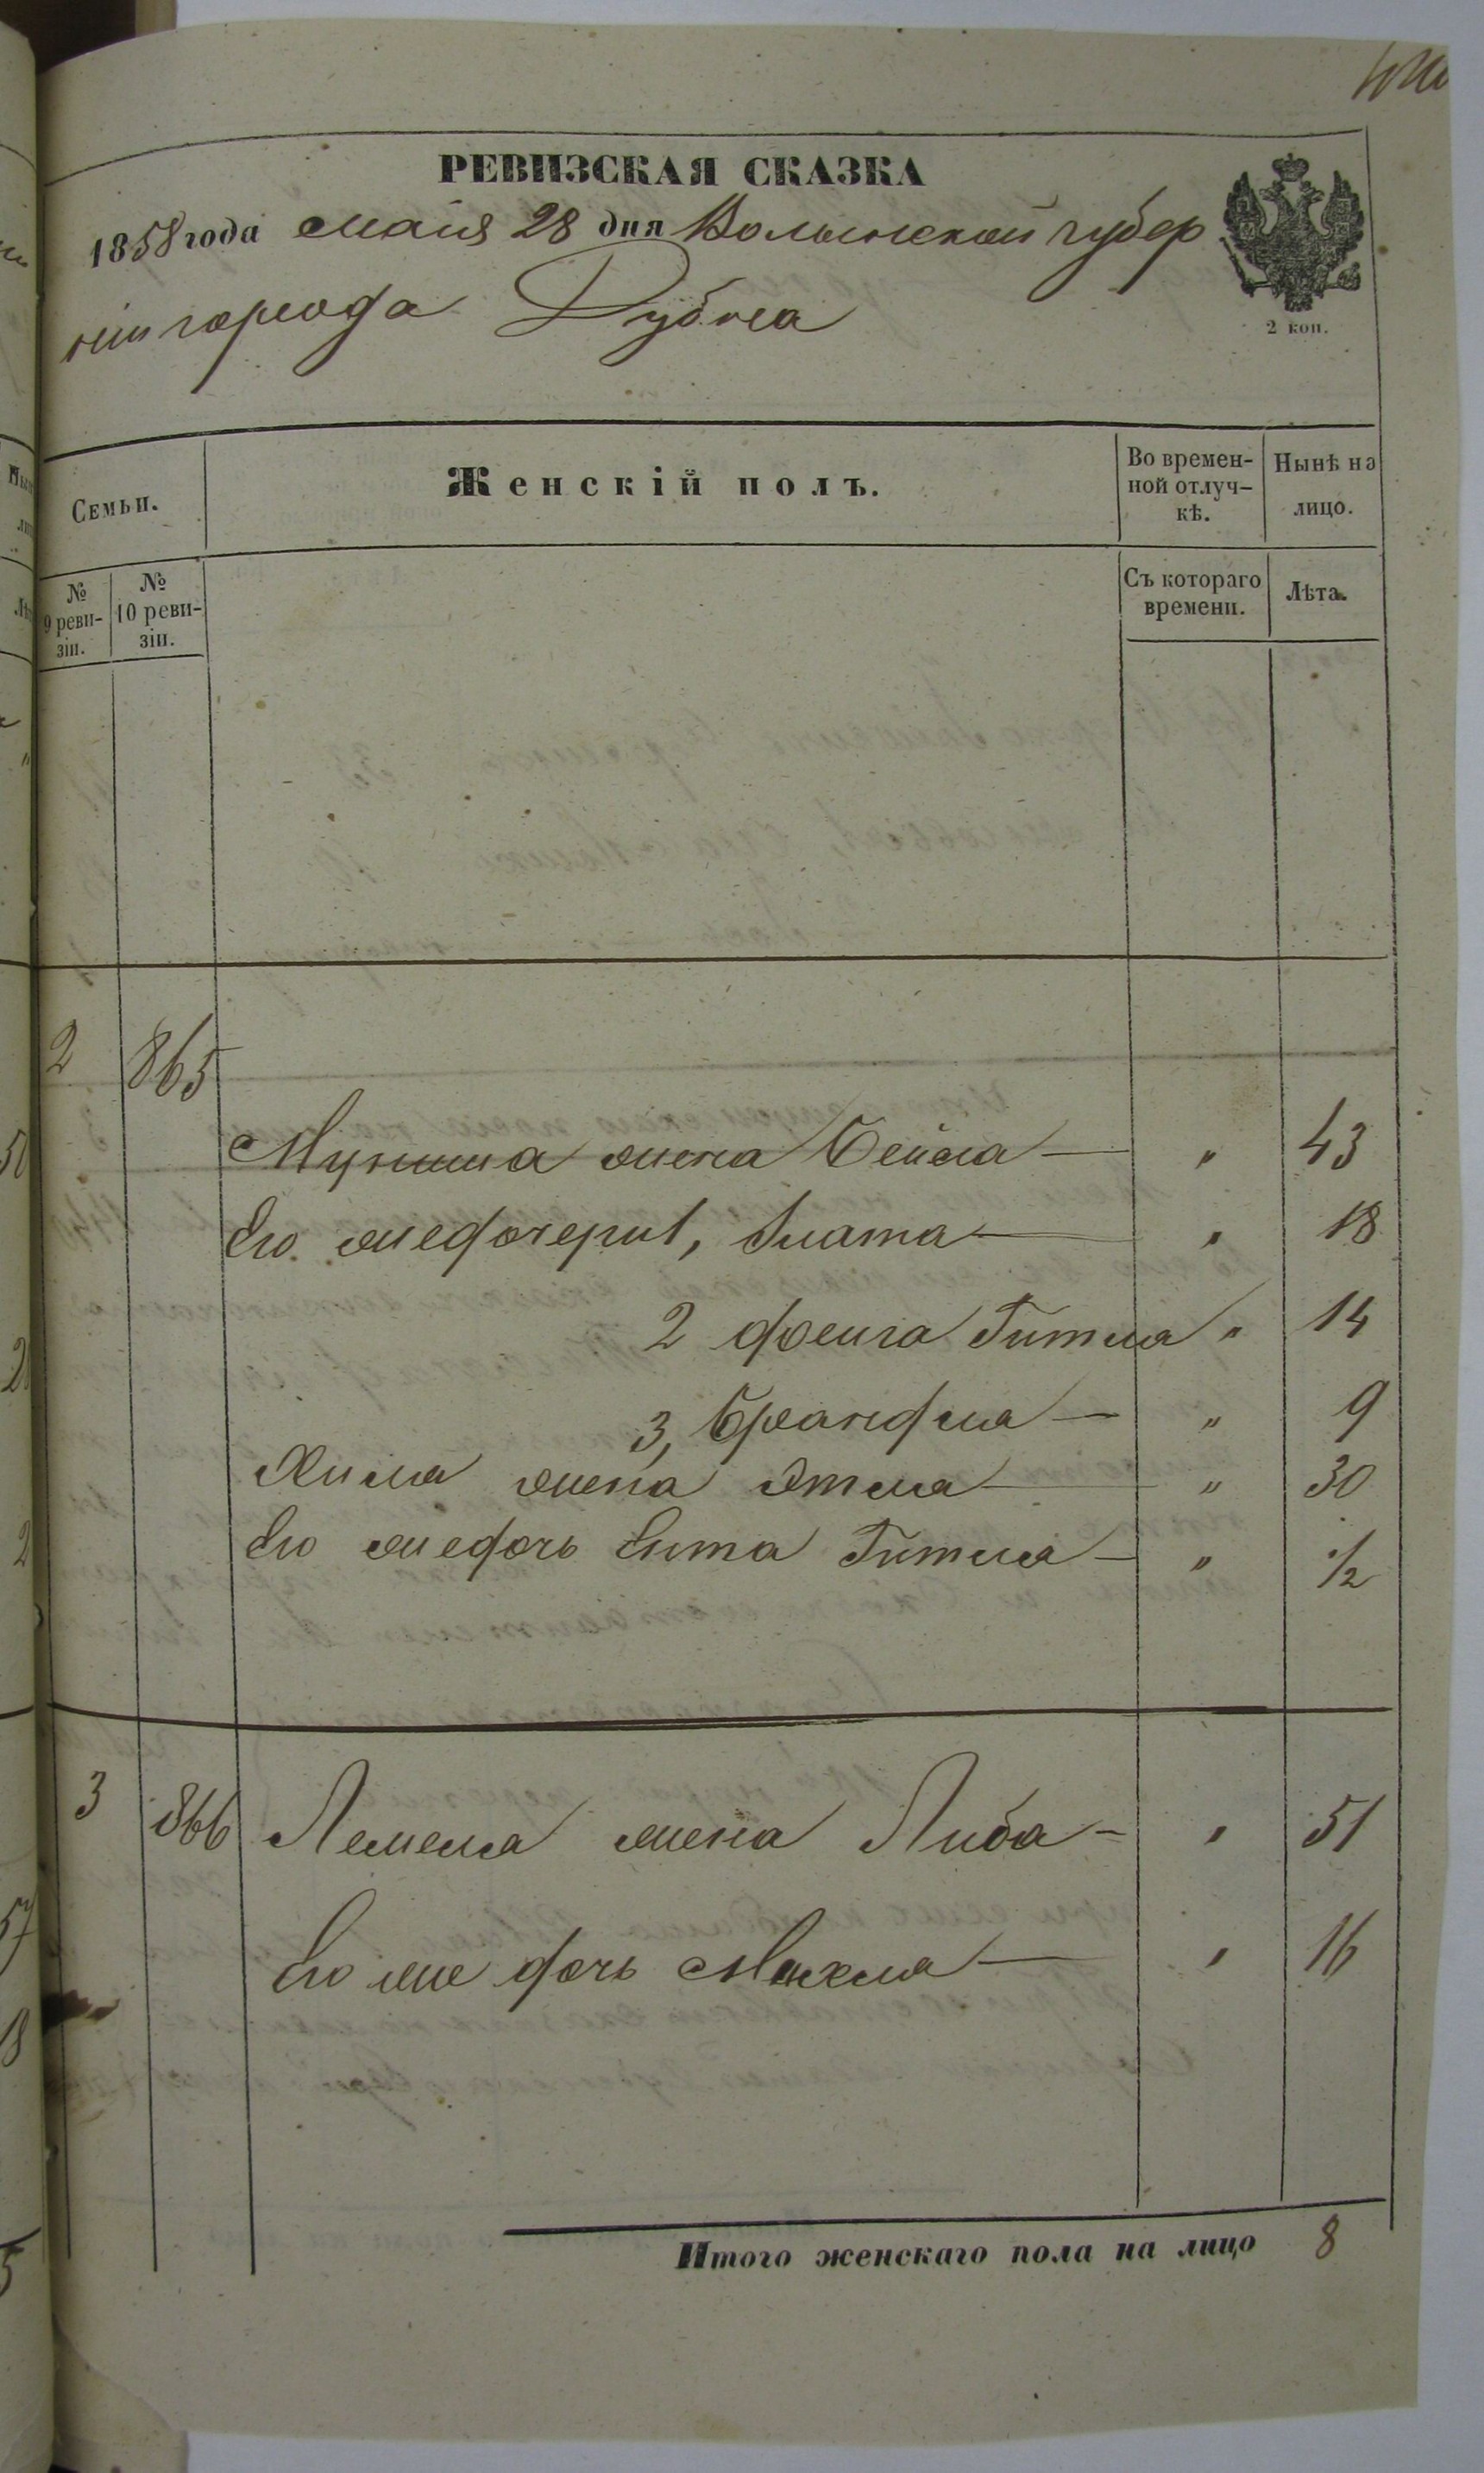 РЕВИЗСКАЯ СКАЗКА
1858 года мaiя 28 дня Волынской губер
нiи города Дубна
2 коп.
Семьи.
Женскій полъ.
Во времен-
ной отлуч-
кѣ.
Нынѣ на
лицо.
№
9 реви-
зіи.
№
10 реви-
зіи.
Съ котораго
времени.
Лѣта.
2 865
Муниша жена Бейла — " 43
Его же дочери 1, Злата — " 18
2 Феига Гитла " 14
3, Брандла — " 9
Хила жена Этла — " 30
Его же дочь Ента Гитла — " 1/2
3 866 Лемела жена Либа — " 51
Его же дочь Махла — " 16
Итого женскаго пола на лицо 8